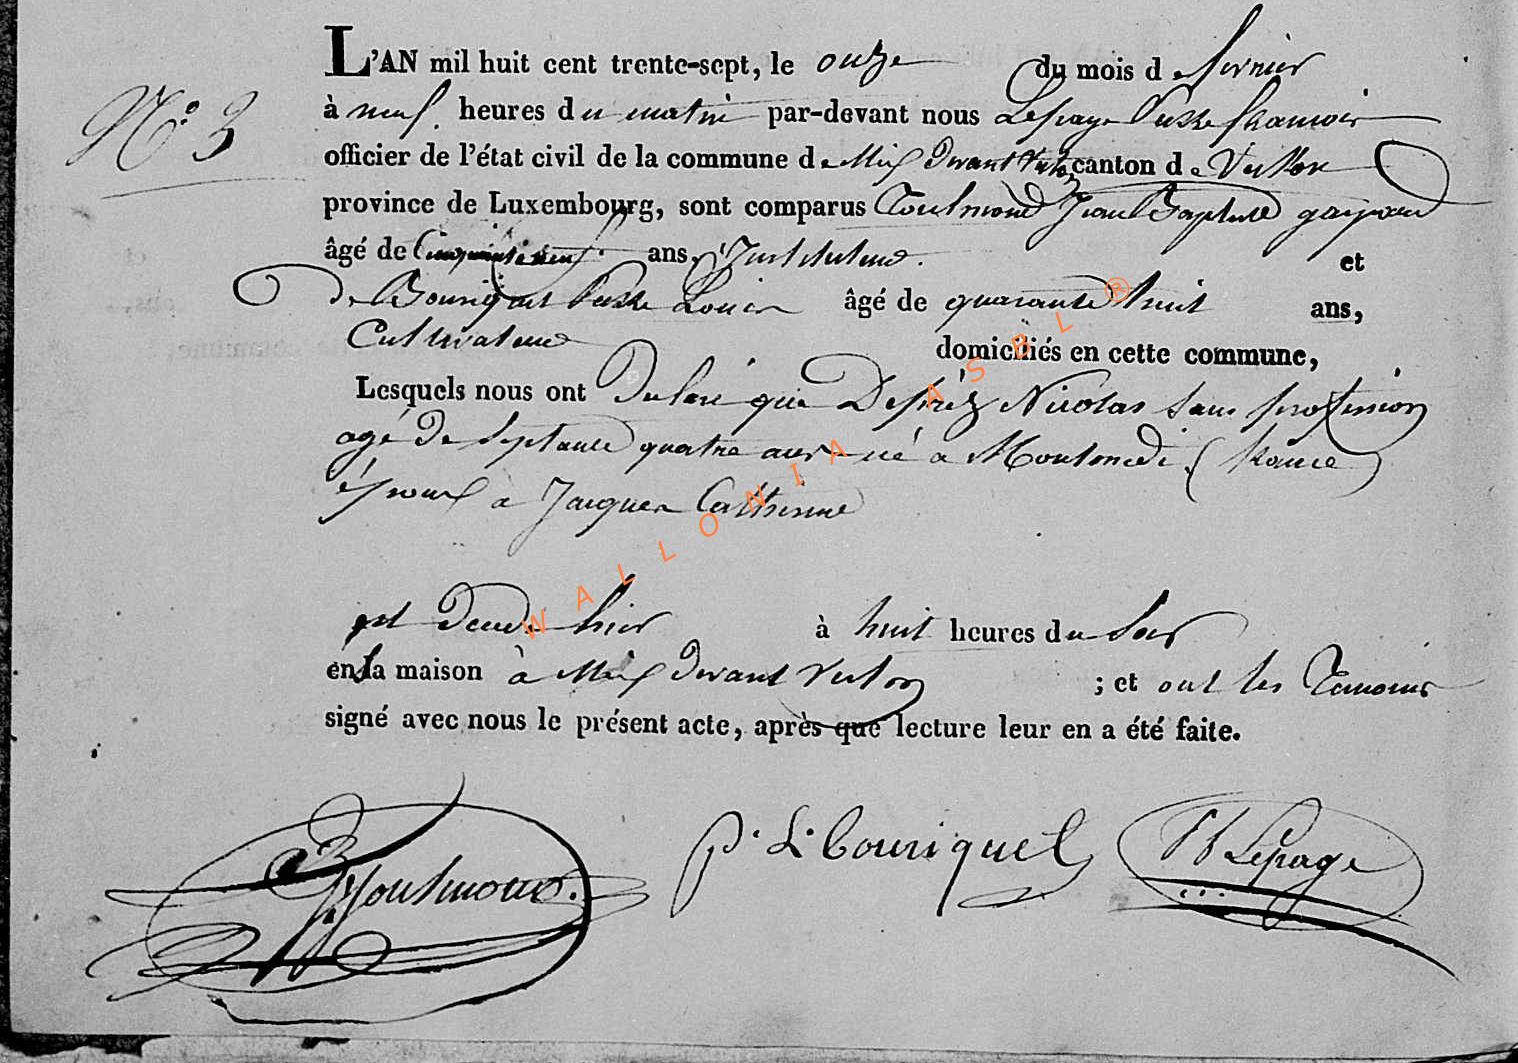 L'AN mil huit cent trente-sept, le onze du mois de fevrier
N.° 3
à neuf heures du matin par-devant nous Lepage Pierre françois
officier de l'état civil de la commune de Meix devant Virton canton de Virton
province de Luxembourg, sont comparus Toulmond Jean Baptiste gaspard
âgé de Cinquante neuf ans, Instituteur. et
de Bouriquet Pierre Louis âgé de quarante huit ans,
Cultivateur domiciliés en cette commune,
Lesquels nous ont Declaré que Depréz Nicolas sans profession
agé de septante quatre ans né à (france)
époux à Jacques Catherine
est decedé hier à huit heures du soir
en sa maison à Meix devant Virton ; et ont les Temoins
signé avec nous le présent acte, après que lecture leur en a été faite.
Toulmond. P. L. Bouriquet Lepage
WALLONIA ASBL ®